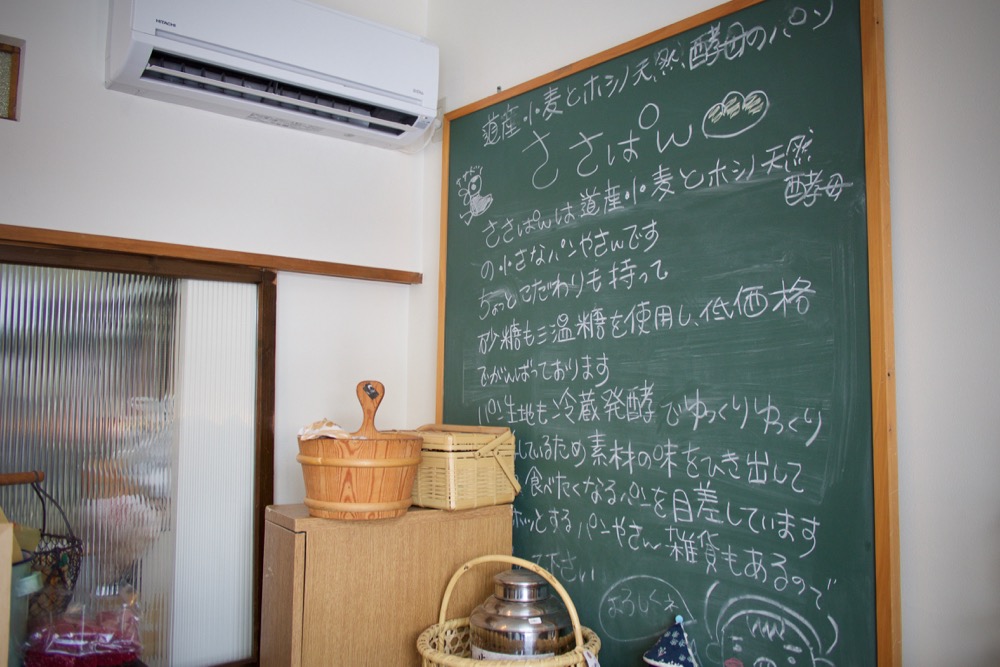 HITACHI
道産小麦とホシノ天然酵母のパン
ささぱん
ささぱんは道産小麦とホシノ天然
酵母
の小さなパンやさんです
ちょっとこだわりも持って
砂糖も三温糖を使用し、低価格
でがんばっております
パン生地も冷蔵発酵でゆっくりゆっくり
しているため素材の味をひき出して
食べたくなるパンを目差しています
ホッとするパンやさん雑貨もあるので
下さい
よろしくネ